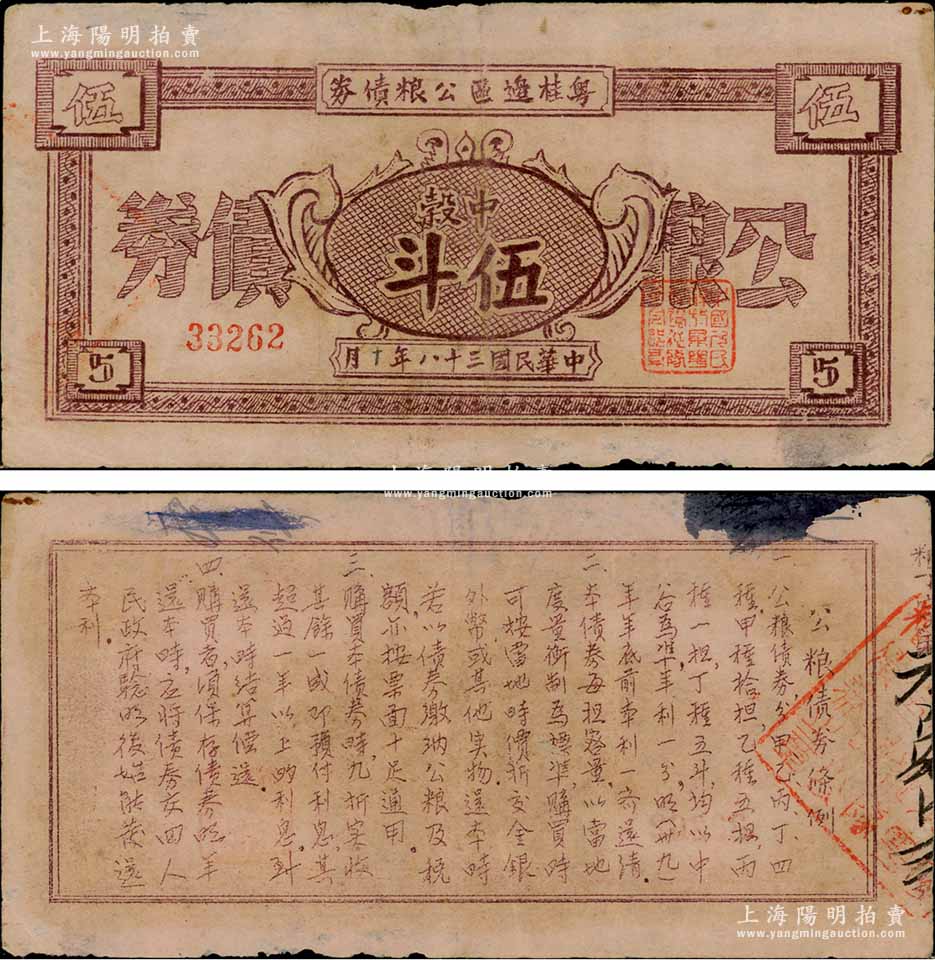 上海陽明拍賣
www.yangmingauction.com
上海陽明拍賣
www.yangmingauction.com
粤桂邊區公粮債券
伍
伍
公粮
債券
中穀
伍斗
33262
中華民國三十八年十月
5
5
上海陽明拍賣
www.yangmingauction.com
公粮債券條例
一、公粮債券分甲乙丙、丁四
種,甲種拾担,乙種五担,丙
種一担,丁種五斗,均以中
谷為準年利一分,明(卅九)
年年底前本利一齐還清。
二、本債券每担容量,以當地
度量衡制為標準,購買時
可按當地時價折交金銀
外幣或其他实物。還本時
若以債券繳纳公粮及税
額,亦按票面十足通用。
三、購買本債券時,九折实收
其餘一成即預付利息,其
超過一年以上的利息,到
還本時结算償還。
四、購買者,須保存債券,明年
還本時,应將債券交回人
民政府驗明後始能發還
本利。
上海陽明拍賣
www.yangmingauction.com